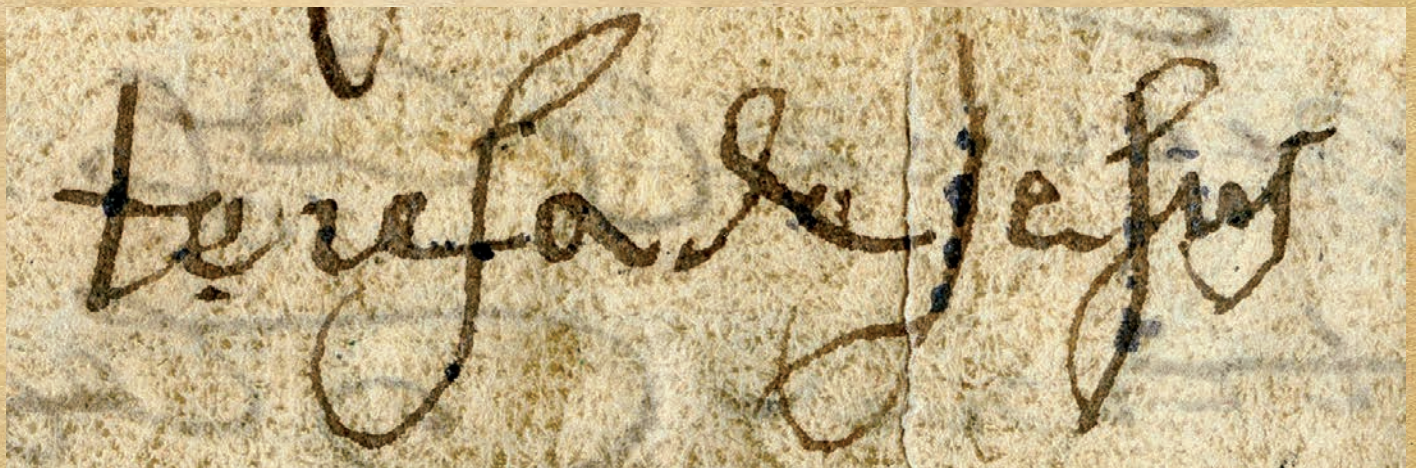 teresa de Jesus